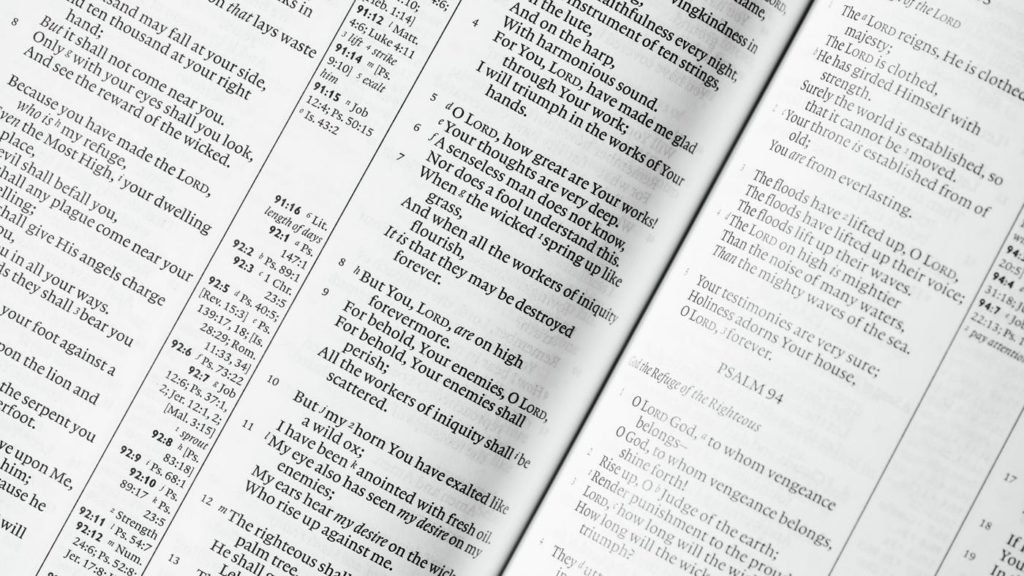 thousand may fall at your side,
And ten thousand at your right
hand;
But it shall not come near you.
8 Only g with your eyes shall you look,
And see the reward of the wicked.
Because you have made the LORD,
who is h my refuge,
Even the Most High, i your dwelling
place,
evil shall befall you,
shall any plague come near your
shall give His angels charge
you,
you in all your ways.
they shall 3 bear you
your foot against a
upon the lion and
the serpent you
upon Me,
him;
because he
will
91:12
[Heb. 1:14]
Matt.
4:6; Luke 4:11
3 lift 4 strike
91:14 j [Ps.
9:10] 5 exalt
him
91:15 n Job
12:4; Ps. 50:15
o Is. 43:2
91:16 6 Lit.
length of days
92:1 a Ps.
147:1
92:2 b Ps. 89:1
92:3 c 1 Chr.
23:5
92:5 d Ps. 40:5;
[Rev. 15:3] e Ps.
139:17, 18; [Is.
28:29; Rom.
11:33, 34]
92:6 f Ps. 73:22
92:7 g Job
12:6; Ps. 37:1,
2; Jer. 12:1, 2;
[Mal. 3:15]
1 sprout
92:8 h [Ps.
83:18]
92:9 i Ps. 68:1
92:10 j Ps.
89:17 k Ps.
23:5
2 Strength
92:11 l Ps. 54:7
92:12 m Num.
24:6; Ps. 52:8;
Jer. 17:8;
lovingkindness in
faithfulness every night,
4 instrument of ten strings,
And on the lute,
And on the harp,
With harmonious sound.
For You, LORD, have made me glad
through Your work;
I will triumph in the works of Your
hands.
5 d O LORD, how great are Your works!
e Your thoughts are very deep.
6 f A senseless man does not know,
Nor does a fool understand this.
7 When g the wicked 1 spring up like
grass,
And when all the workers of iniquity
flourish,
It is that they may be destroyed
forever.
8 h But You, LORD, are on high
forevermore.
9 For behold, Your enemies, O LORD,
For behold, Your enemies shall
perish;
All the workers of iniquity shall i be
scattered.
10 But j my 2 horn You have exalted like
a wild ox;
I have been k anointed with fresh oil.
11 l My eye also has seen my desire on my
enemies;
My ears hear my desire on the wicked
Who rise up against me.
12 m The righteous shall
palm tree,
He shall
13
of the LORD
1 The a LORD reigns, He is clothed
majesty;
The LORD is clothed,
b He has girded Himself with
strength.
Surely the world is established, so
that it cannot be 1 moved.
2 Your throne is established from of
old;
You are from everlasting.
3 The floods have 2 lifted up, O LORD,
The floods have lifted up their voice;
The floods lift up their waves.
4 d The LORD on high is mightier
Than the noise of many waters,
Than the mighty waves of the sea.
5 Your testimonies are very sure;
Holiness adorns Your house,
O LORD, 3 forever.
PSALM 94
God the Refuge of the Righteous
1 O LORD God, a to whom vengeance
belongs—
O God, to whom vengeance belongs,
shine forth!
2 Rise up, O b Judge of the earth;
Render punishment to the proud.
3 LORD, c how long will the wicked,
How long will the wicked
triumph?
4 They d utter
17
18 If
19